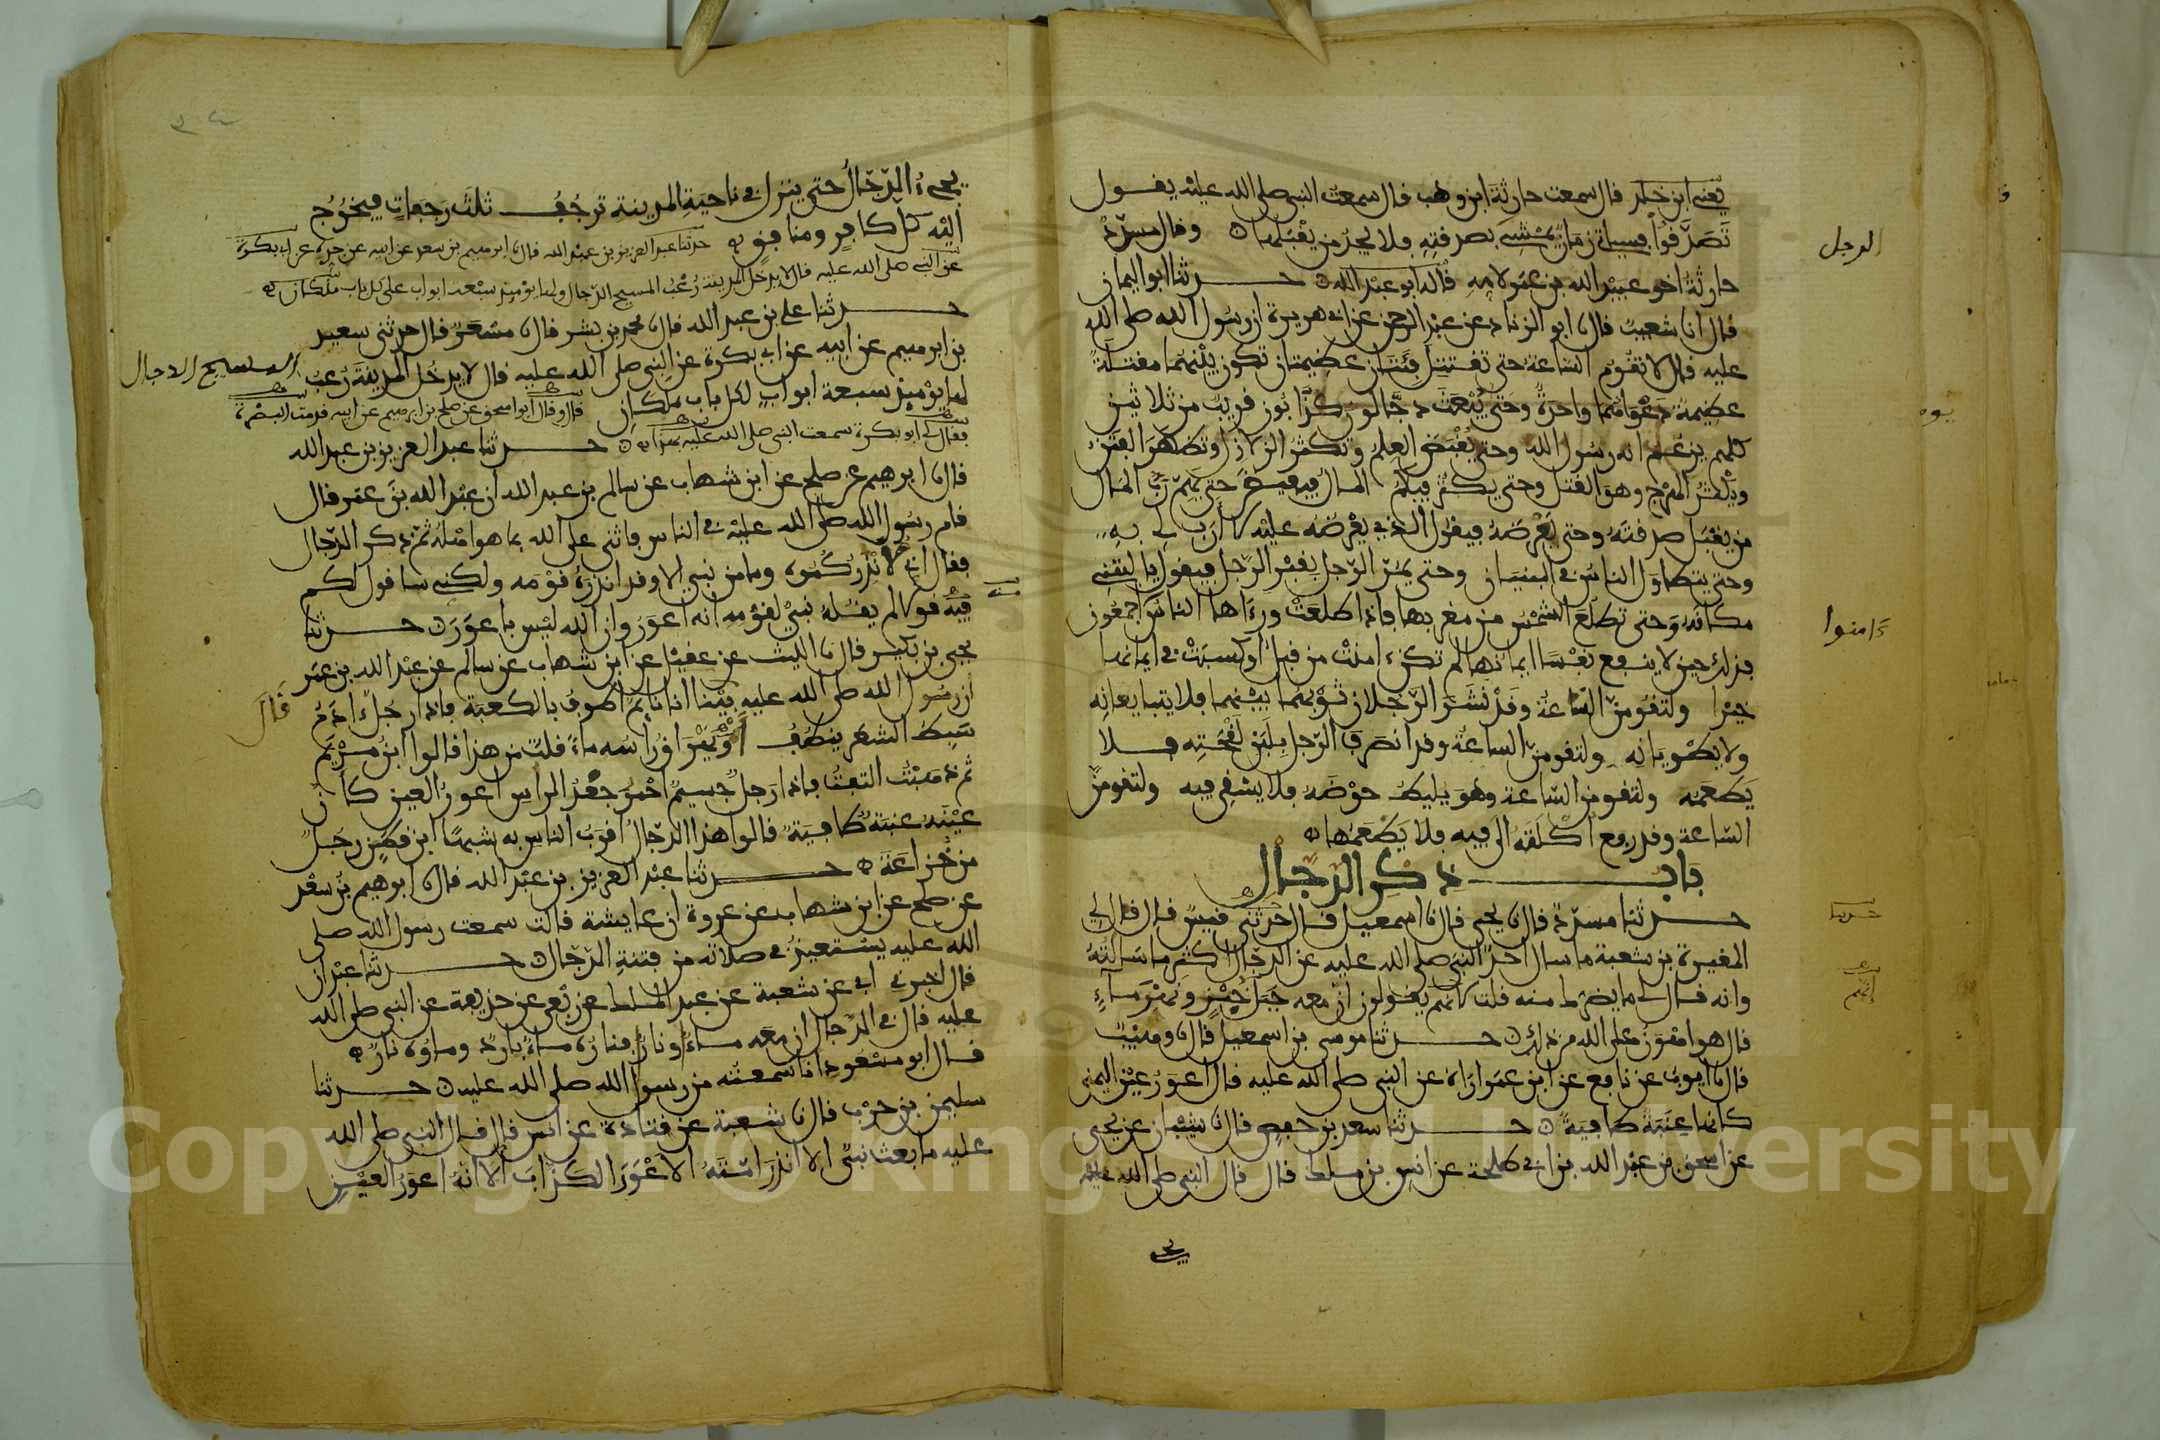 يعني ابن خالد قال سمعت حارثة ابن وهب قال سمعت النبي صلى الله عليه يقول
تصدقوا فسياتي زمان يمشي بصدقته فلا يجد من يقبلها وقال مسدد
الرجل
حارثة اخو عبيد الله بن عمر لامه قاله ابو عبد الله حدثنا ابو اليمان
قال انا شعيب قال نا ابو الزناد عن عبد الرحمن عن ابي هريرة ان رسول الله صلى الله
عليه قال لا تقوم الساعة حتى تقتتل فئتان عظيمتان تكون بينهما مقتلة
عظيمة دعواهما واحدة وحتى يبعث دجالون كذابون قريب من ثلاثين
كلهم يزعم انه رسول الله وحتى يقبض العلم وتكثر الزلازل وتظهر الفتن
ويكثر الهرج وهو القتل وحتى يكثر فيكم المال فيفيض حتى يهم رب المال
من يقبل صدقته وحتى يعرضه فيقول الذي يعرضه عليه لا ارب لي به
وحتى يتطاول الناس في البنيان وحتى يمر الرجل بقبر الرجل فيقول ياليتني
مكانه وحتى تطلع الشمس من مغربها فاذا طلعت ورءاها الناس اجمعون
ءامنوا
فذلك حين لا ينفع نفسا ايمانها لم تكن ءامنت من قبل او كسبت في ايمانها
خيرا ولتقومن الساعة وقد نشر الرجلان ثوبهما بينهما فلا يتبايعانه
ولا يطويانه ولتقومن الساعة وقد انصرف الرجل بلبن لقحته فلا
يطعمه ولتقومن الساعة وهو يليط حوضه فلا يسقي فيه ولتقومن
الساعة وقد رفع اكلته الى فيه فلا يطعمها
باب ذكر الدجال
حدثنا مسدد قال نا يحيى قال نا اسمعيل قال حدثني قيس قال قال لي
المغيرة بن شعبة ما سال احد النبي صلى الله عليه عن الدجال اكثر ما سالته
وانه قال لي ما يضرك منه قلت لانهم يقولون ان معه جبل خبز ونهر ماء
انهم
قال هو اهون على الله من ذلك حدثنا موسى بن اسمعيل قال نا وهيب
قال نا ايوب عن نافع عن ابن عمر اراه عن النبي صلى الله عليه قال اعور عين اليمنى
كانها عنبة طافية حدثنا سعد بن حفص قال نا شيبان عن يحيى
عن اسحق بن عبد الله بن ابي طلحة عن انس بن ملك قال قال النبي صلى الله عليه
يجيء الدجال حتى ينزل في ناحية المدينة ترجف ثلث رجفات فيخرج
اليه كل كافر ومنافق حدثنا عبد العزيز بن عبد الله قال نا ابرهيم بن سعد عن ابيه عن جده عن ابي بكرة
عن النبي صلى الله عليه قال لا يدخل المدينة رعب المسيح الدجال ولها يومئذ سبعة ابواب على كل باب ملكان
حدثنا علي بن عبد الله قال نا محمد بن بشر قال نا مسعر قال حدثني سعيد
بن ابرهيم عن ابيه عن ابي بكرة عن النبي صلى الله عليه قال لا يدخل المدينة رعب
المسيح الدجال
لها يومئذ سبعة ابواب لكل باب ملكان قال وقال ابو اسحق عن صلح بن ابرهيم عن ابيه قدمت البصرة
فقال لي ابو بكرة سمعت النبي صلى الله عليه بهذا حدثنا عبد العزيز بن عبد الله
قال نا ابرهيم عن صلح عن ابن شهاب عن سالم بن عبد الله ان عبد الله بن عمر قال
قام رسول الله صلى الله عليه في الناس فاثنى على الله بما هو اهله ثم ذكر الدجال
فقال اني لانذركموه وما من نبي الا وقد انذره قومه ولكني ساقول لكم
فيه قولا لم يقله نبي لقومه انه اعور وان الله ليس باعور حدثنا
يحيى بن بكير قال نا الليث عن عقيل عن ابن شهاب عن سالم عن عبد الله بن عمر
ان رسول الله صلى الله عليه بينا انا نايم اطوف بالكعبة فاذا رجل ءادم
قال
سبط الشعر ينطف او يهراق راسه ماء قلت من هذا قالوا ابن مريم
ثم ذهبت التفت فاذا رجل جسيم احمر جعد الراس اعور العين كان
عينه عنبة طافية قالوا هذا الدجال اقرب الناس به شبها ابن قطن رجل
من خزاعة حدثنا عبد العزيز بن عبد الله قال نا ابرهيم بن سعد
عن صلح عن ابن شهاب عن عروة ان عايشة قالت سمعت رسول الله صلى
الله عليه يستعيذ في صلاته من فتنة الدجال حدثنا عبدان
قال اخبرني ابي عن شعبة عن عبد الملك عن ربعي عن حذيفة عن النبي صلى الله
عليه قال في الدجال ان معه ماء ونارا فناره ماء بارد وماؤه نار
قال ابو مسعود انا سمعته من رسول الله صلى الله عليه حدثنا
سليمن بن حرب قال نا شعبة عن قتادة عن انس قال قال النبي صلى الله
عليه ما بعث نبي الا انذر امته الاعور الكذاب الا انه اعور العين
Copyright © King Saud University